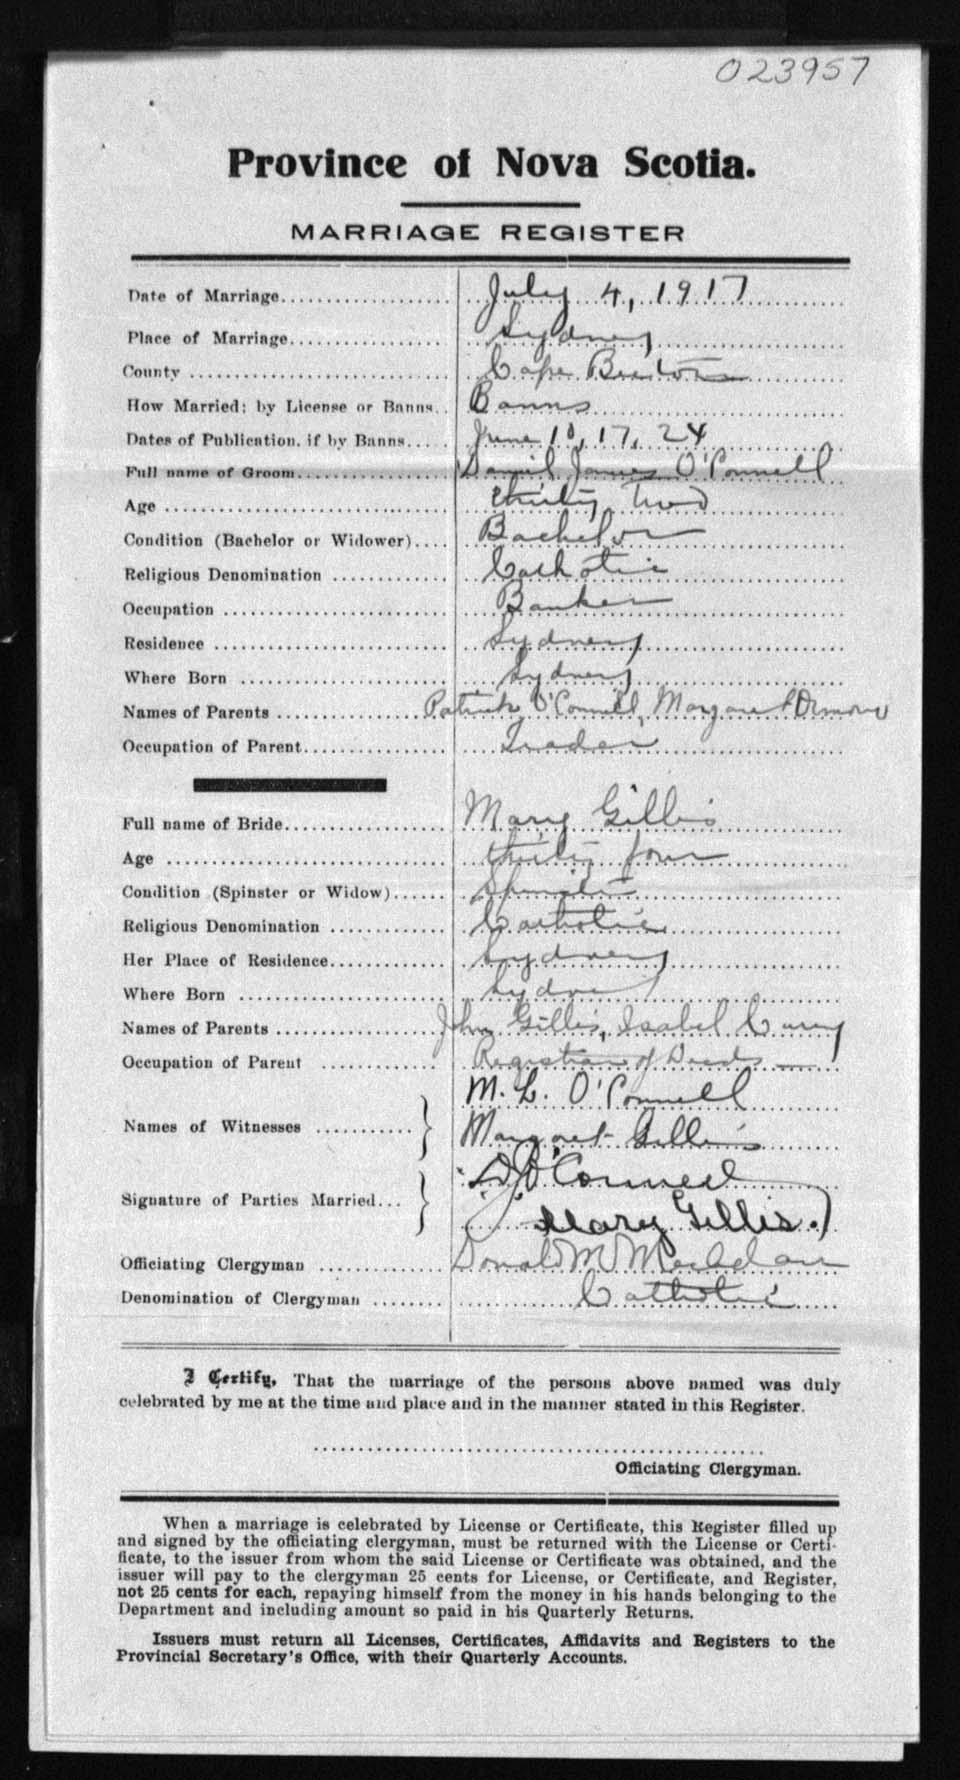 023957
Province of Nova Scotia.
MARRIAGE REGISTER
Date of Marriage.................... July 4, 1917
Place of Marriage.................. Sydney
County ............................. Cape Breton
How Married: by License or Banns.. Banns
Dates of Publication, if by Banns..... June 10, 17, 24
Full name of Groom.................. Daniel James O'Connell
Age ............................... thirty two
Condition (Bachelor or Widower).... Bachelor
Religious Denomination ............. Catholic
Occupation ......................... Banker
Residence .......................... Sydney
Where Born ........................ Sydney
Names of Parents .................. Patrick O'Connell, Margaret Ormond
Occupation of Parent................ Trader
Full name of Bride.................. Mary Gillis
Age ............................... thirty four
Condition (Spinster or Widow)...... Spinster
Religious Denomination ............. Catholic
Her Place of Residence.............. Sydney
Where Born ........................ Sydney
Names of Parents .................. John Gillis, Isabel Curry
Occupation of Parent .............. Registrar of Deeds
M. L. O'Connell
Names of Witnesses ...........
Margaret Gillis
D J O'Connell
Signature of Parties Married...
Mary Gillis.
Officiating Clergyman .............. Donald M
Denomination of Clergyman ........ Catholic
I Certify, That the marriage of the persons above named was duly
celebrated by me at the time and place and in the manner stated in this Register.
Officiating Clergyman.
When a marriage is celebrated by License or Certificate, this Register filled up
and signed by the officiating clergyman, must be returned with the License or Certi-
ficate, to the issuer from whom the said License or Certificate was obtained, and the
issuer will pay to the clergyman 25 cents for License, or Certificate, and Register,
not 25 cents for each, repaying himself from the money in his hands belonging to the
Department and including amount so paid in his Quarterly Returns.
Issuers must return all Licenses, Certificates, Affidavits and Registers to the
Provincial Secretary's Office, with their Quarterly Accounts.